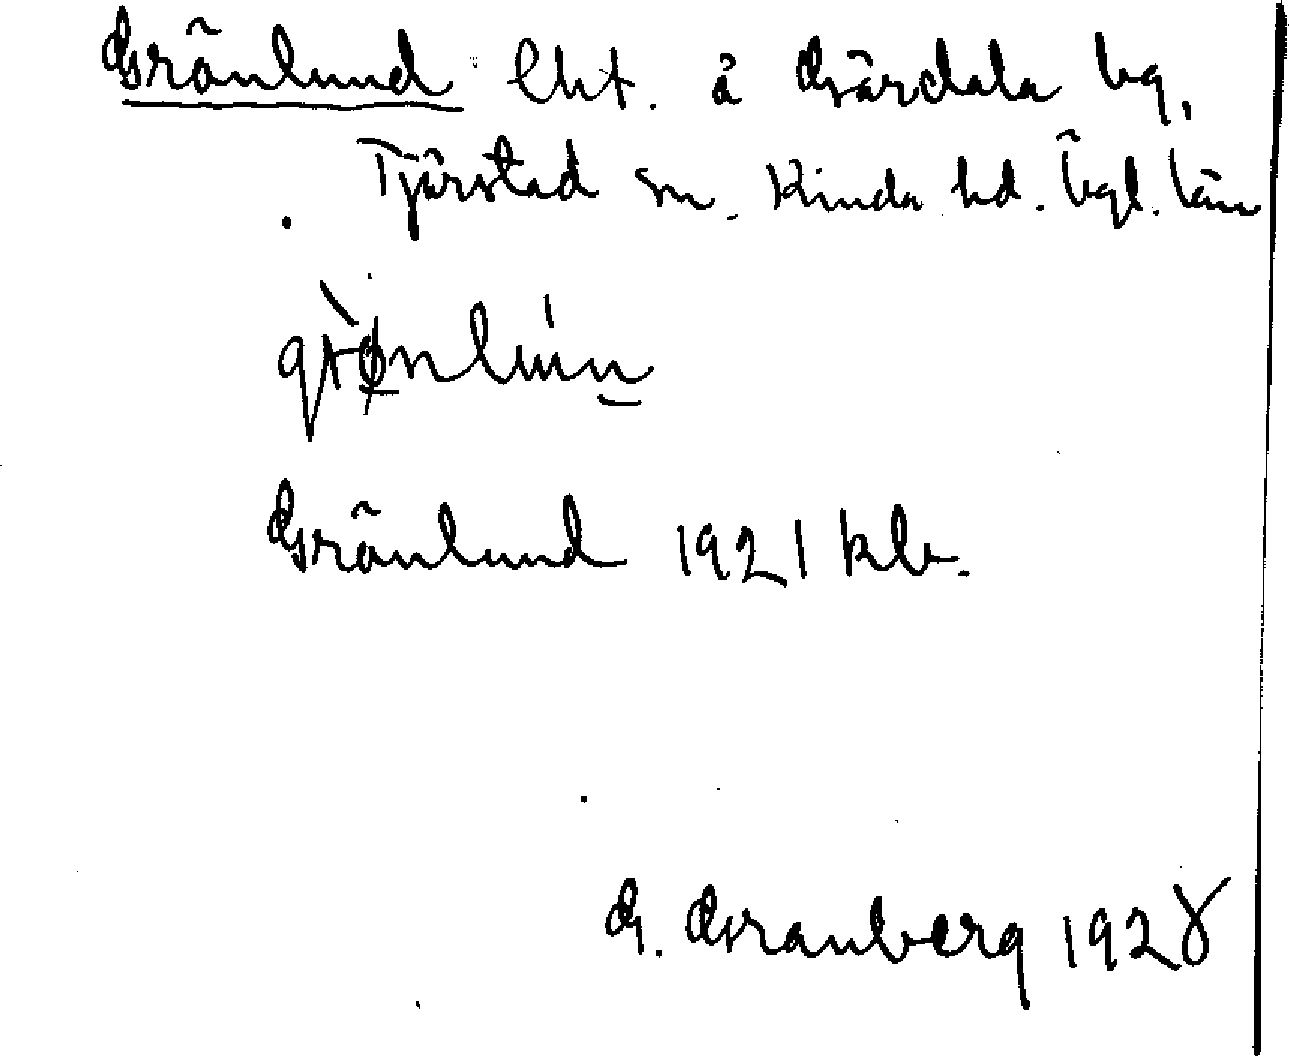 Grönlund lht. å Gärdala bg,
Tjärstad sn. Kinda hd. Ögl. län
grø̀nlún
Grönlund 1921 kb.
G. Granberg 1928